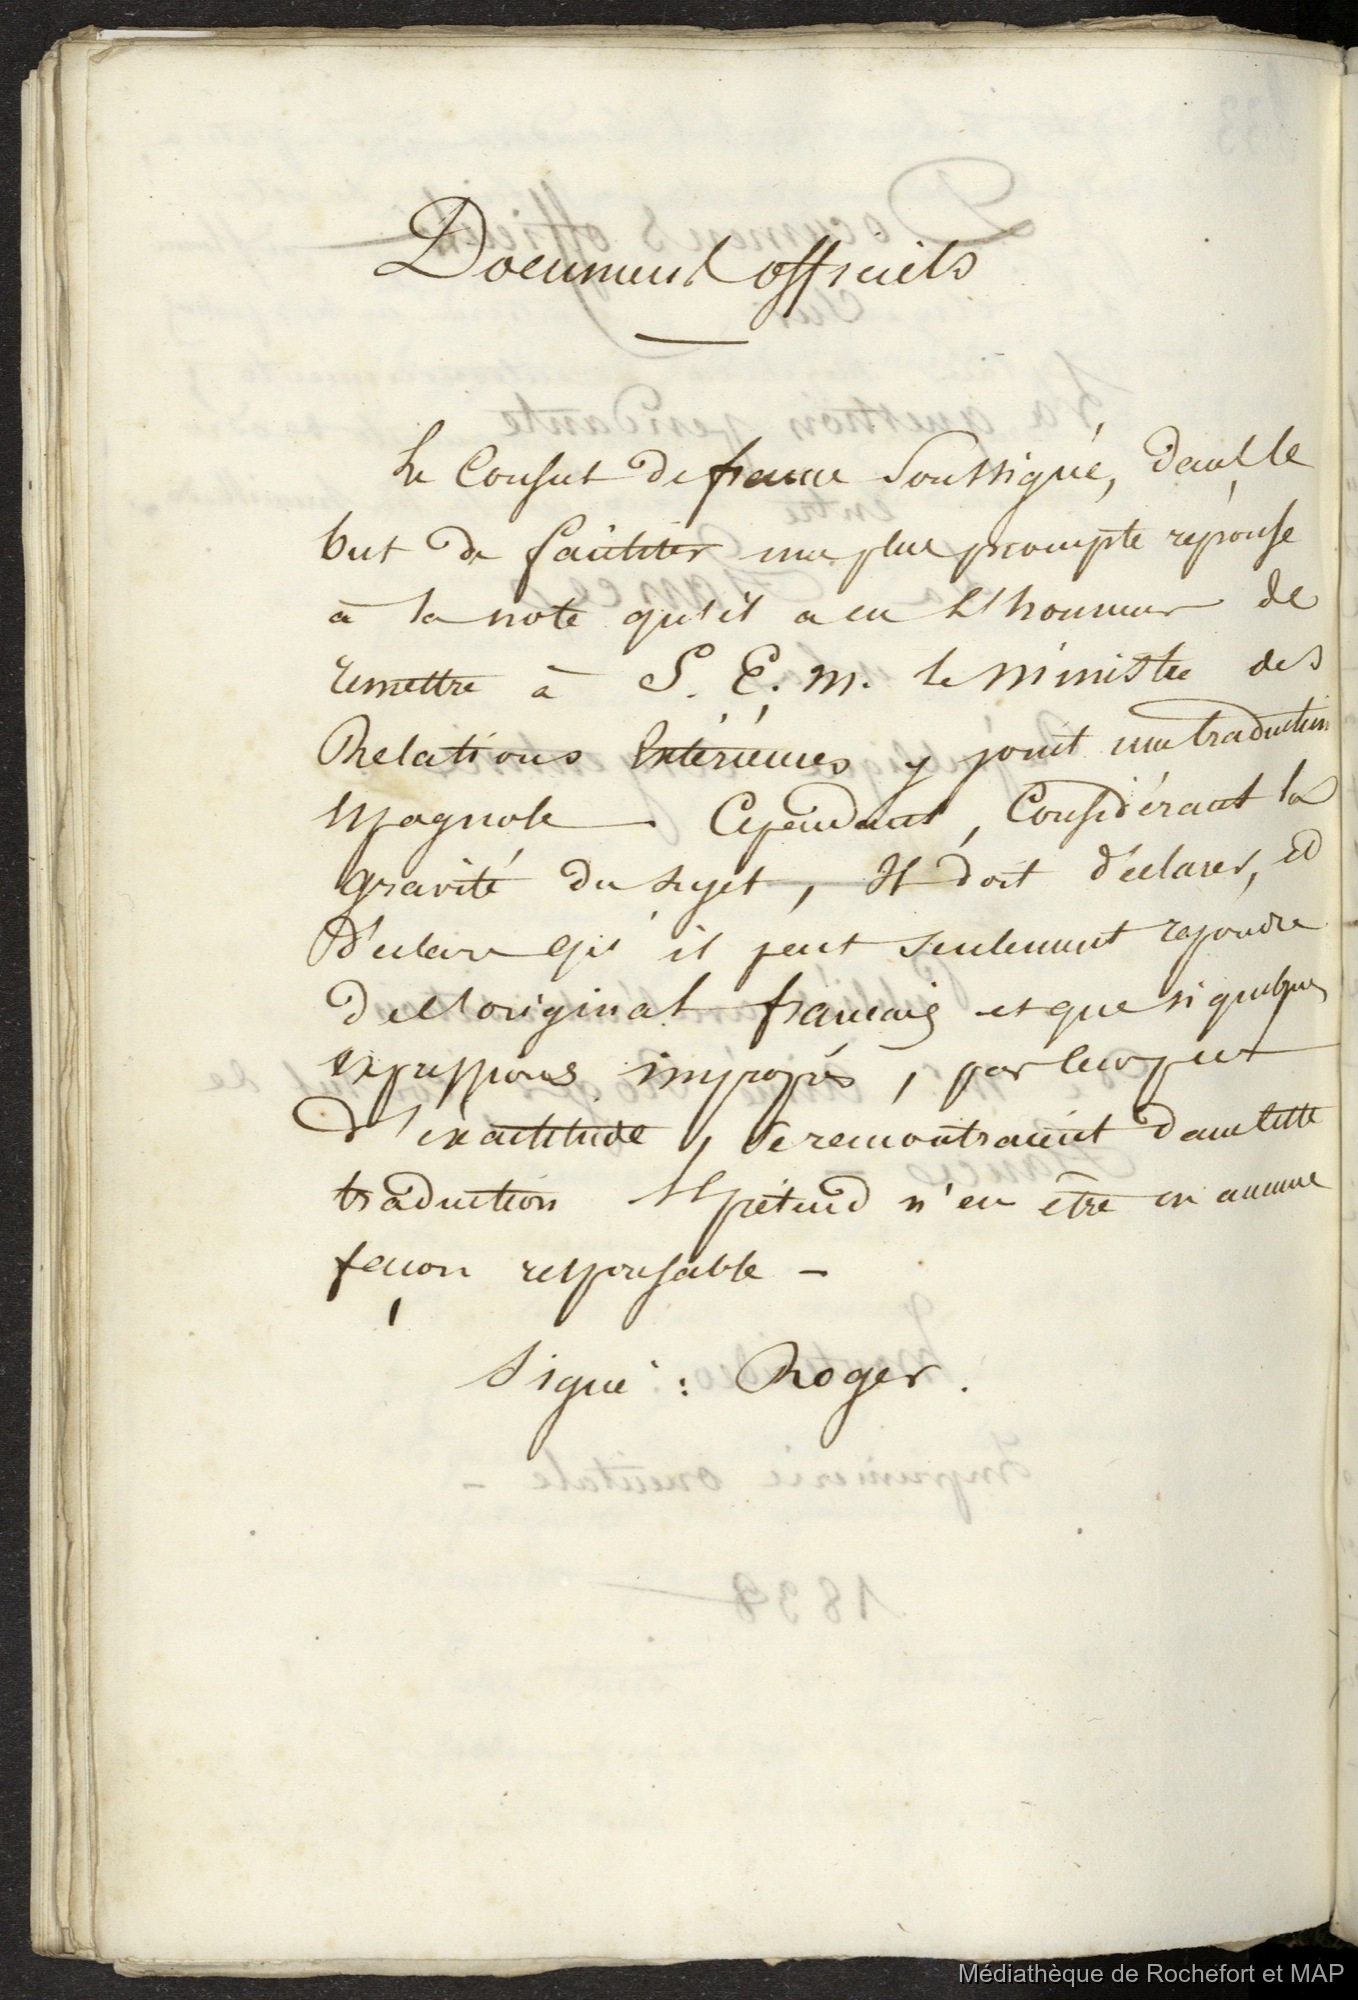 Documents officiels
Le Consul de france Soussigné, dans le
but de faciliter une plus prompte réponse
à la note qu'il a eu l'honneur de
remettre à S. E. M. le Ministre des
Relations Extérieures y joint une traduction
espagnole. Cependant, Considérant la
gravité du sujet, Il doit déclarer, et
Déclare qu'il peut seulement répondre
de l'original français et que si quelques
expressions impropres, par leur peu
d'exactitude, se rencontraient dans cette
traduction Il prétend n'en être en aucune
façon responsable -
Signé : Roger.
Médiathèque de Rochefort et MAP